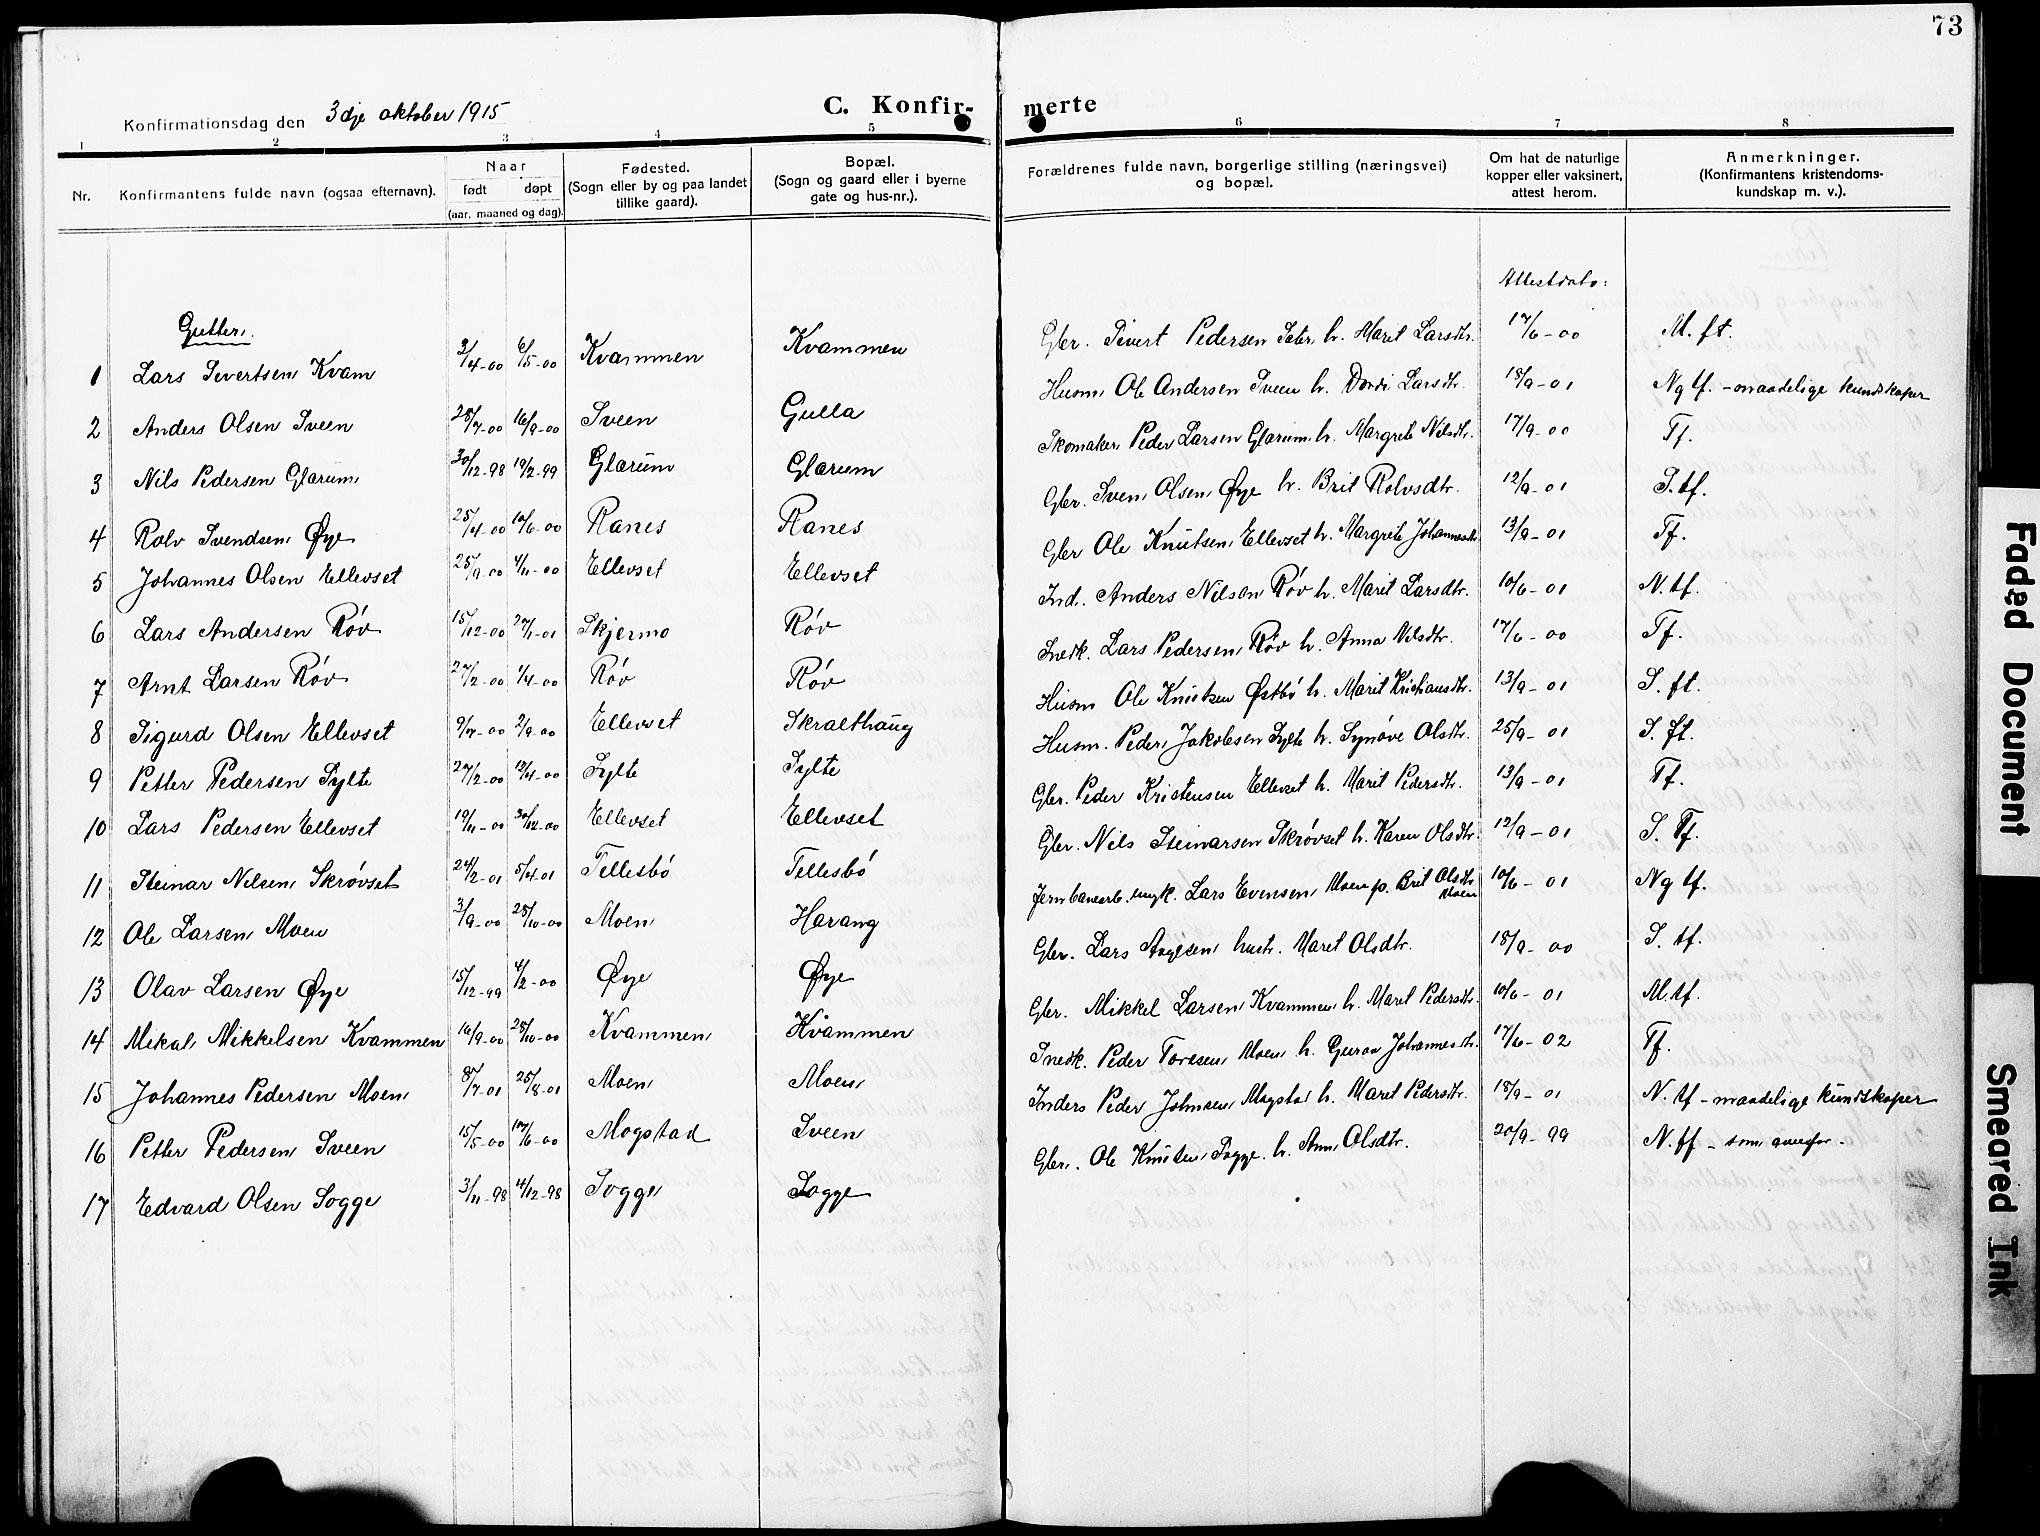 73
Konfirmationsdag den 3dje oktober 1915
C. Konfir- merte
1 2 3 4 5 6 7 8
Nr. Konfirmantens fulde navn (ogsaa efternavn). Naar født døpt (aar, maaned og dag). Fødested. (Sogn eller by og paa landet tillike gaard). Bopæl. (Sogn og gaard eller i byerne gate og hus-nr.). Forældrenes fulde navn, borgerlige stilling (næringsvei) og bopæl. Om hat de naturlige kopper eller vaksinert, attest herom. Anmerkninger. (Konfirmantens kristendoms-kundskap m. v.).
Attestdato:
Gutter.
1 Lars Sivertsen Kvam 3/4-00 6/5-00 Kvammen Kvammen Gbr. Sivert Pedersen h. Marit Larsdtr. 17/6-00 M. ft.
2 Anders Olsen Sveen 28/7-00 16/9-00 Sveen Gulla Husm. Ole Andersen Sveen h. Dordi Larsdtr. 18/9-01 Ng tf. - maadelige kundskaper
3 Nils Pedersen Glærum 30/12-98 19/2-99 Glærum Glærum Skomaker Peder Larsen Glærum h. Margrete Nilsdtr. 17/9-00 Tf.
4 Rolv Svendsen Øye 25/4-00 10/6-00 Ranes Ranes Gbr. Sven Olsen Øye h. Brit Rolvsdtr. 12/9-01 S. tf.
5 Johannes Olsen Ellevset 25/9-00 4/11-00 Ellevset Ellevset Gbr Ole Knutsen Ellevset h. Margrete Johannesdtr. 13/9-01 Tf.
6 Lars Andersen Røv 15/12-00 27/1-01 Skjermo Røv Ind. Anders Nilsen Røv h. Marit Larsdtr. 10/6-01 N. tf.
7 Arnt Larsen Røv 27/2-00 1/4-00 Røv Røv Snedk. Lars Pedersen Røv h. Anna Nilsdtr. 17/6-00 Tf.
8 Sigurd Olsen Ellevset 9/7-00 2/9-00 Ellevset Skralthaug Husm Ole Knutsen Østbø h. Marit Kristiansdtr. 13/9-01 S. ft.
9 Petter Pedersen Sylte 27/2-00 13/4-00 Sylte Sylte Husm. Peder Jakobsen Sylte h. Synøve Olsdtr. 25/9-01 S. ft.
10 Lars Pedersen Ellevset 19/11-00 30/12-00 Ellevset Ellevset Gbr. Peder Kristensen Ellevset h. Marit Pedersdtr. 13/9-01 Tf.
11 Steinar Nilsen Skrøvset 24/2-01 5/4-01 Tellesbø Tellesbø Gbr. Nils Steinarsen Skrøvset h. Karen Olsdtr. 12/9-01 S. Tf.
12 Ole Larsen Moen 3/9-00 28/10-00 Moen Harang Jernbanearb. ungk. Lars Evensen Moen p. Brit Olsdtr. Moen 10/6-01 Ng tf.
13 Olav Larsen Øye 15/12-99 4/2-00 Øye Øye Gbr. Lars hustr. Marit Olsdtr. 18/9-00 S. tf.
14 Mikal Mikkelsen Kvammen 16/9-00 28/10-00 Kvammen Kvammen Gbr. Mikkel Larsen Kvammen h. Marit Pedersdtr. 10/6-01 M. tf.
15 Johannes Pedersen Moen 8/7-01 25/8-01 Moen Moen Snedk. Peder Toresen Moen h. Guroa Johannesdtr. 17/6-02 Tf.
16 Petter Pedersen Sveen 15/5-00 17/6-00 Mogstad Sveen Inders Peder Johnsen Mogstad h. Marit Pedersdtr. 18/9-01 N. tf - maadelige kundskaper
17 Edvard Olsen Sogge 3/11-98 4/12-98 Sogge Sogge Gbr. Ole Knutsen Sogge. h. Ann Olsdtr. 20/9-99 N. tf - som
Faded Document
Smeared Ink